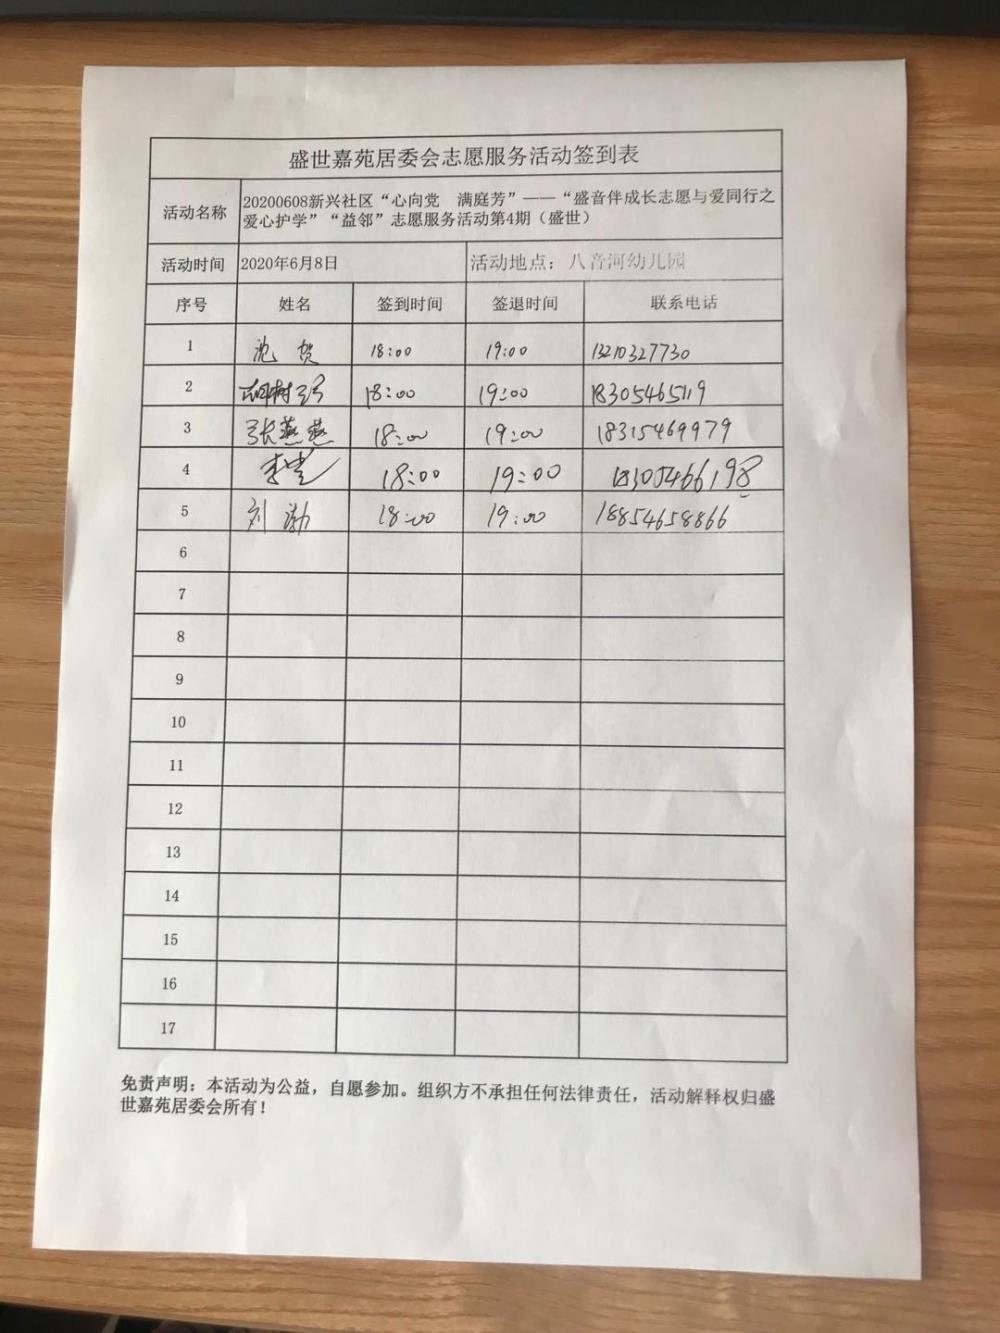 盛世嘉苑居委会志愿服务活动签到表
活动名称
20200608新兴社区“心向党 满庭芳”——“盛音伴成长志愿与爱同行之
爱心护学”“益邻”志愿服务活动第4期（盛世）
活动时间 2020年6月8日 活动地点：八音河幼儿园
序号 姓名 签到时间 签退时间 联系电话
1 18:00 19:00 13210327730
2 18:00 19:00 18305465119
3 张燕燕 18:00 19:00 18315469979
4 18:00 19:00 18305466198
5 刘渤 18:00 19:00 18854658866
6
7
8
9
10
11
12
13
14
15
16
17
免责声明：本活动为公益，自愿参加。组织方不承担任何法律责任，活动解释权归盛
世嘉苑居委会所有！